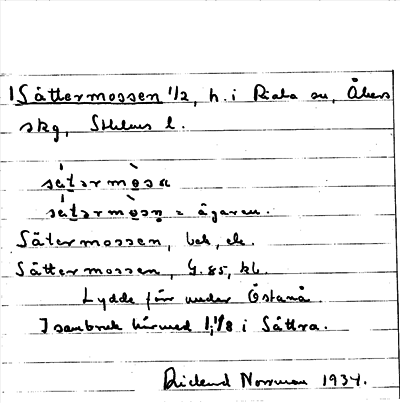 1 Såttermossen 1/2, h. i Riala sn, Åkers
skg, Sthlms l.
sátərmòsa
sátərmòsn = ägaren.
Sätermossen, bok, ek.
Såttermossen, G. 85, kb.
Lydde förr under Östanå.
I sambruk härmed 1, 1/8 i Såttra.
Rickard Norrman 1934.